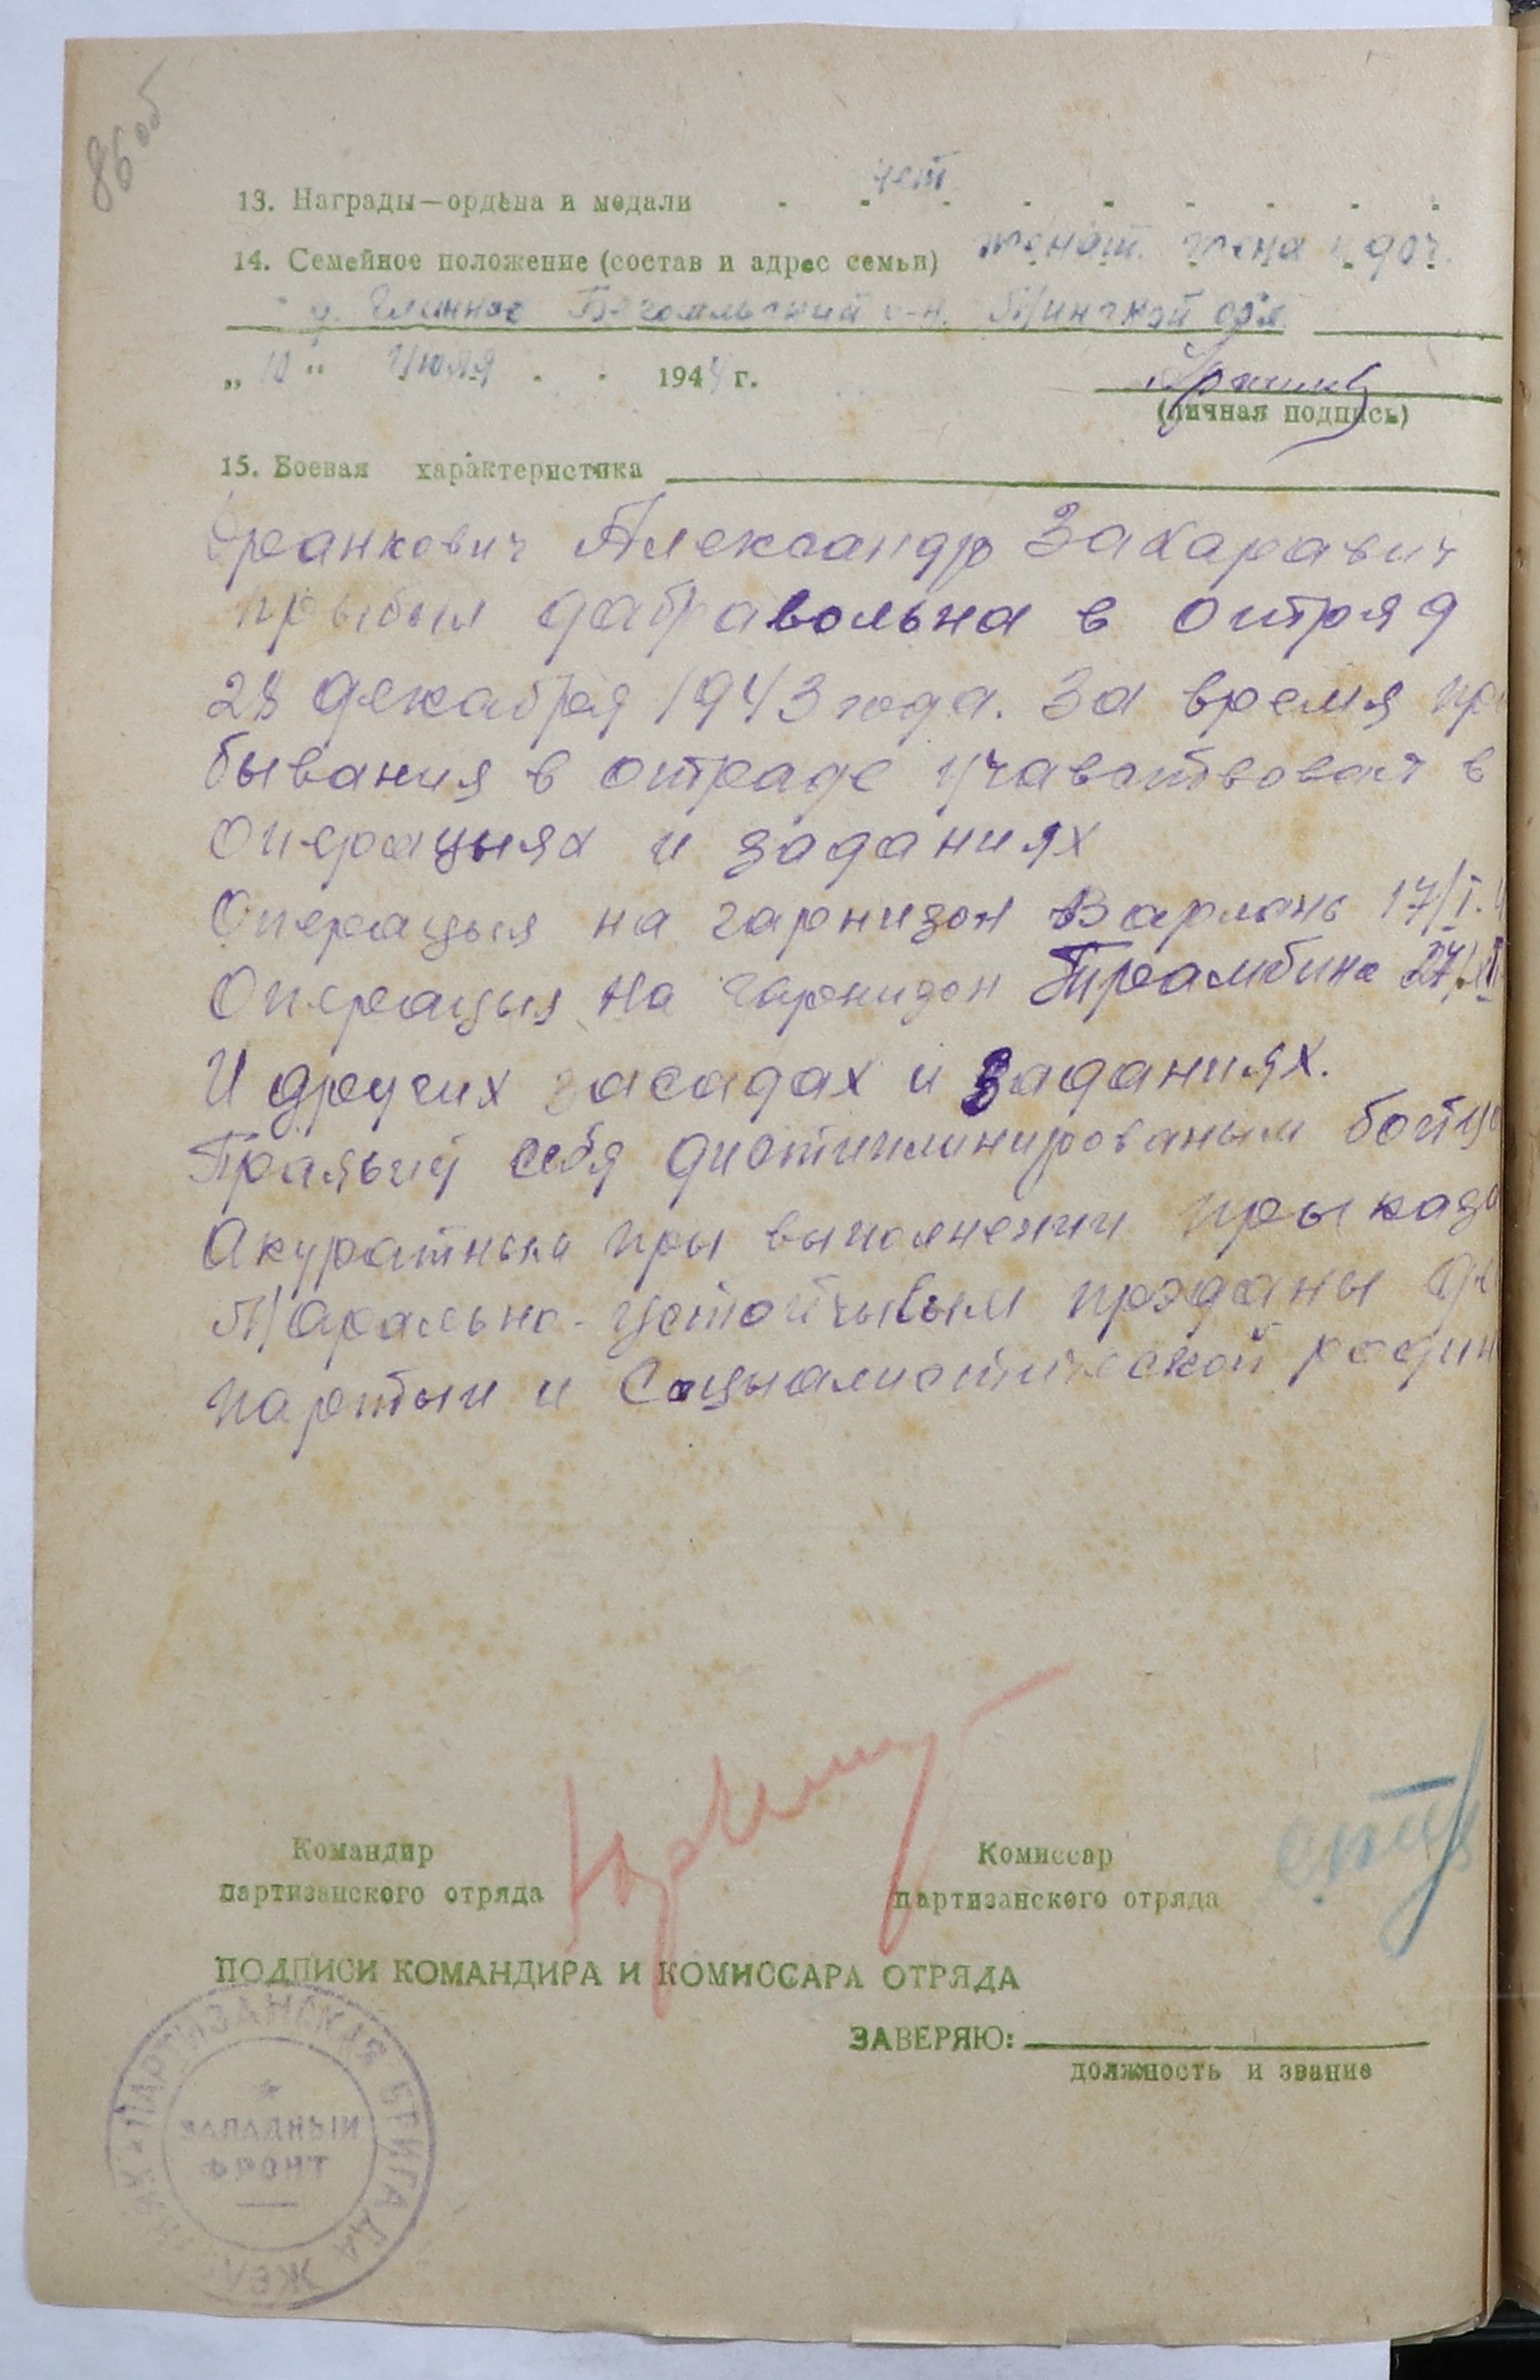 86 об
13. Награды—ордена и медали - нет
14. Семейное положение (состав и адрес семьи) женат. жена и доч.
д. Глинное Бегомльский р-н. Минской обл.
„10" Июля 1944 г.
(личная подпись)
15. Боевая характеристика
Франкович Александр Захаравич
прыбыл дабравольна в отряд
28 декабря 1943 года. За время пра
бывания в отраде учавствовал в
Операцыях и заданиях
Операцыя на гарнизон Варлань 17/I.4
Операцыя на гарнизон Трамбина 27/XI
И других засадах и заданиях.
Праявил себя дистиплинированым бойцо
Акуратным пры выполнении прыказа
Марально-устойчывым прэданы
партыи и Социалистической родин
Командир
партизанского отряда
Комиссар
партизанского отряда
ПОДПИСИ КОМАНДИРА И КОМИССАРА ОТРЯДА
ЗАВЕРЯЮ:
должность и звание
ПАРТИЗАНСКАЯ БРИГАДА ЖЕЛЕЗНЯК
ЗАПАДНЫЙ
ФРОНТ